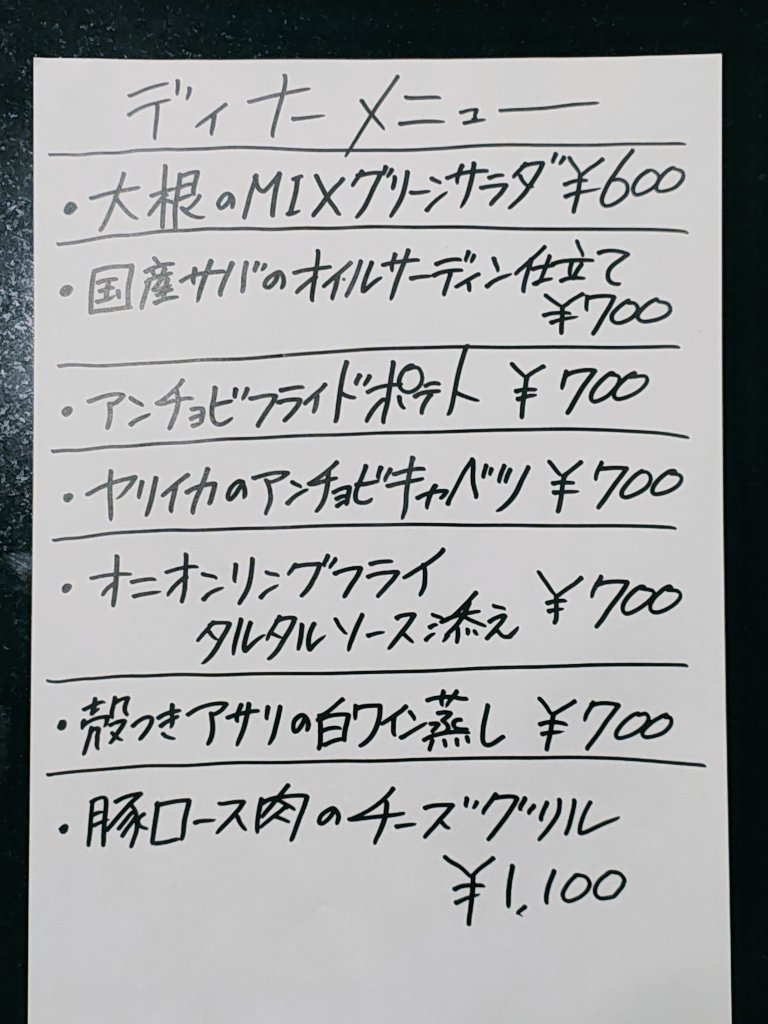 ディナーメニュー
・大根のMIXグリーンサラダ ¥600
・国産サバのオイルサーディン仕立て
¥700
・アンチョビフライドポテト ¥700
・ヤリイカのアンチョビキャベツ ¥700
・オニオンリングフライ
タルタルソース添え ¥700
・殻つきアサリの白ワイン蒸し ¥700
・豚ロース肉のチーズグリル
¥1,100